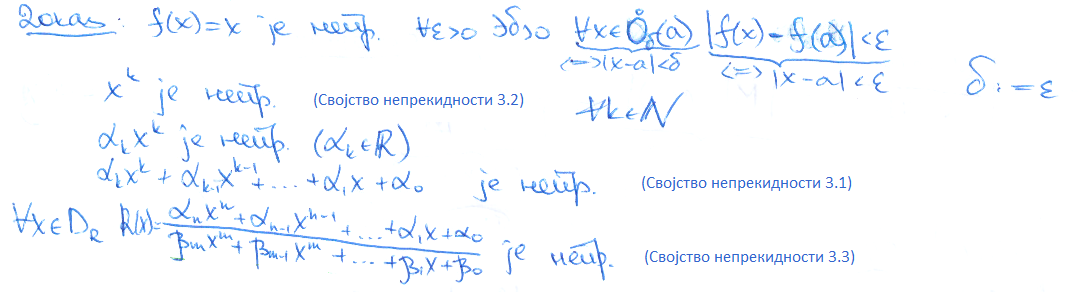 Доказ: f(x)=x је непр. ∀ε>0 ∃δ>0 ∀x∈O̊δ(a) |f(x)-f(a)|<ε
<=>|x-a|<δ <=>|x-a|<ε δ:=ε
x^k је непр. (Својство непрекидности 3.2) ∀k∈N
α_k x^k је непр. (α_k∈R)
α_k x^k + α_{k-1} x^{k-1} + ... + α_1 x + α_0 је непр. (Својство непрекидности 3.1)
∀x∈D_R R(x)= (α_n x^n + α_{n-1} x^{n-1} + ... + α_1 x + α_0)/(β_m x^m + β_{m-1} x^m + ... + β_1 x + β_0) је непр. (Својство непрекидности 3.3)